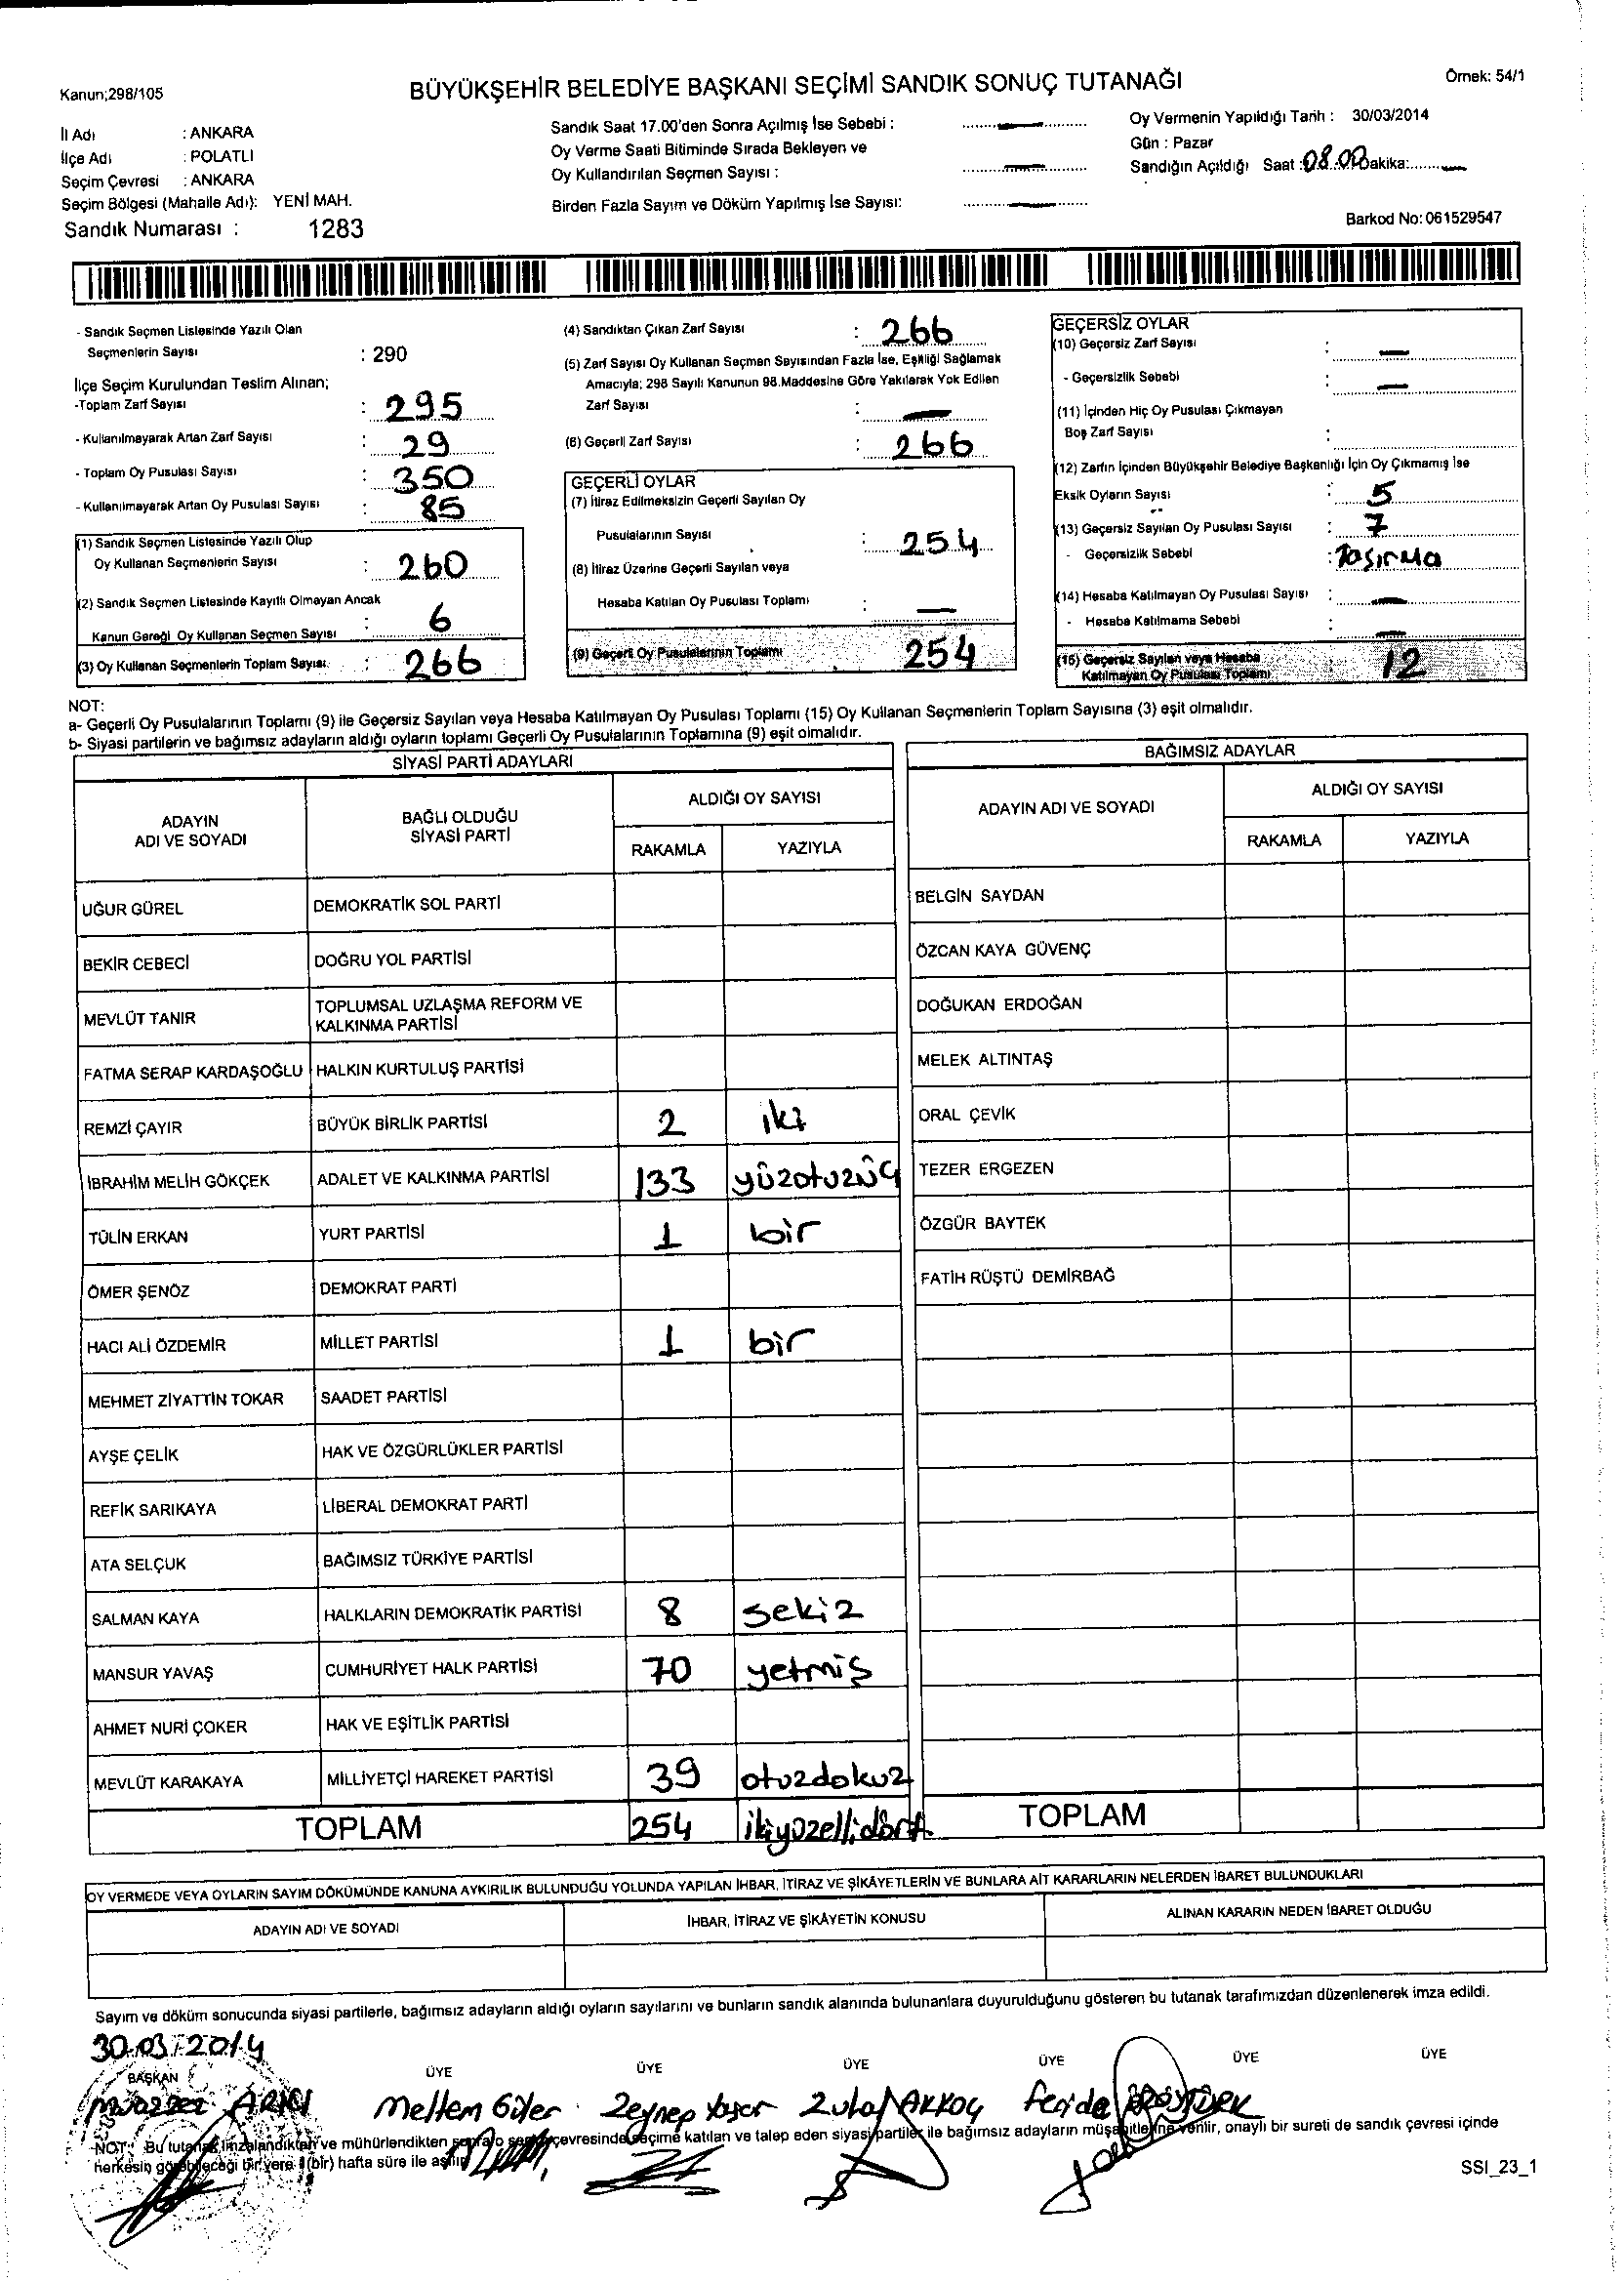 Kanun;298/105
BÜYÜKŞEHİR BELEDİYE BAŞKANI SEÇİMİ SANDIK SONUÇ TUTANAĞI
Örnek: 54/1
İl Adı : ANKARA
İlçe Adı : POLATLI
Seçim Çevresi : ANKARA
Seçim Bölgesi (Mahalle Adı): YENİ MAH.
Sandık Numarası : 1283
Sandık Saat 17.00'den Sonra Açılmış İse Sebebi : —
Oy Verme Saati Bitiminde Sırada Bekleyen ve
Oy Kullandırılan Seçmen Sayısı : —
Birden Fazla Sayım ve Döküm Yapılmış İse Sayısı: —
Oy Vermenin Yapıldığı Tarih : 30/03/2014
Gün : Pazar
Sandığın Açıldığı Saat : 08.00 Dakika: —
Barkod No: 061529547
- Sandık Seçmen Listesinde Yazılı Olan
Seçmenlerin Sayısı : 290
İlçe Seçim Kurulundan Teslim Alınan;
-Toplam Zarf Sayısı : 295
- Kullanılmayarak Artan Zarf Sayısı : 29
- Toplam Oy Pusulası Sayısı : 350
- Kullanılmayarak Artan Oy Pusulası Sayısı : 85
(1) Sandık Seçmen Listesinde Yazılı Olup
Oy Kullanan Seçmenlerin Sayısı : 260
(2) Sandık Seçmen Listesinde Kayıtlı Olmayan Ancak
Kanun Gereği Oy Kullanan Seçmen Sayısı : 6
(3) Oy Kullanan Seçmenlerin Toplam Sayısı : 266
(4) Sandıktan Çıkan Zarf Sayısı : 266
(5) Zarf Sayısı Oy Kullanan Seçmen Sayısından Fazla İse, Eşitliği Sağlamak
Amacıyla; 298 Sayılı Kanunun 98.Maddesine Göre Yakılarak Yok Edilen
Zarf Sayısı : —
(6) Geçerli Zarf Sayısı : 266
GEÇERLİ OYLAR
(7) İtiraz Edilmeksizin Geçerli Sayılan Oy
Pusulalarının Sayısı : 254
(8) İtiraz Üzerine Geçerli Sayılan veya
Hesaba Katılan Oy Pusulası Toplamı : —
(9) Geçerli Oy Pusulalarının Toplamı 254
GEÇERSİZ OYLAR
(10) Geçersiz Zarf Sayısı : —
- Geçersizlik Sebebi : —
(11) İçinden Hiç Oy Pusulası Çıkmayan
Boş Zarf Sayısı :
(12) Zarfın İçinden Büyükşehir Belediye Başkanlığı İçin Oy Çıkmamış İse
Eksik Oyların Sayısı : 5
(13) Geçersiz Sayılan Oy Pusulası Sayısı : 7
- Geçersizlik Sebebi : Taşırma
(14) Hesaba Katılmayan Oy Pusulası Sayısı : —
- Hesaba Katılmama Sebebi : —
(15) Geçersiz Sayılan veya Hesaba
Katılmayan Oy Pusulası Toplamı 12
NOT:
a- Geçerli Oy Pusulalarının Toplamı (9) ile Geçersiz Sayılan veya Hesaba Katılmayan Oy Pusulası Toplamı (15) Oy Kullanan Seçmenlerin Toplam Sayısına (3) eşit olmalıdır.
b- Siyasi partilerin ve bağımsız adayların aldığı oyların toplamı Geçerli Oy Pusulalarının Toplamına (9) eşit olmalıdır.
SİYASİ PARTİ ADAYLARI
ADAYIN ADI VE SOYADI
BAĞLI OLDUĞU SİYASİ PARTİ
ALDIĞI OY SAYISI
RAKAMLA YAZIYLA
UĞUR GÜREL DEMOKRATİK SOL PARTİ
BEKİR CEBECİ DOĞRU YOL PARTİSİ
MEVLÜT TANIR TOPLUMSAL UZLAŞMA REFORM VE KALKINMA PARTİSİ
FATMA SERAP KARDAŞOĞLU HALKIN KURTULUŞ PARTİSİ
REMZİ ÇAYIR BÜYÜK BİRLİK PARTİSİ 2 iki
İBRAHİM MELİH GÖKÇEK ADALET VE KALKINMA PARTİSİ 133 yüzotuzüç
TÜLİN ERKAN YURT PARTİSİ 1 bir
ÖMER ŞENÖZ DEMOKRAT PARTİ
HACI ALİ ÖZDEMİR MİLLET PARTİSİ 1 bir
MEHMET ZİYATTİN TOKAR SAADET PARTİSİ
AYŞE ÇELİK HAK VE ÖZGÜRLÜKLER PARTİSİ
REFİK SARIKAYA LİBERAL DEMOKRAT PARTİ
ATA SELÇUK BAĞIMSIZ TÜRKİYE PARTİSİ
SALMAN KAYA HALKLARIN DEMOKRATİK PARTİSİ 8 sekiz
MANSUR YAVAŞ CUMHURİYET HALK PARTİSİ 70 yetmiş
AHMET NURİ ÇOKER HAK VE EŞİTLİK PARTİSİ
MEVLÜT KARAKAYA MİLLİYETÇİ HAREKET PARTİSİ 39 otuzdokuz
TOPLAM 254 ikiyüzellidört
BAĞIMSIZ ADAYLAR
ADAYIN ADI VE SOYADI
ALDIĞI OY SAYISI
RAKAMLA YAZIYLA
BELGİN SAYDAN
ÖZCAN KAYA GÜVENÇ
DOĞUKAN ERDOĞAN
MELEK ALTINTAŞ
ORAL ÇEVİK
TEZER ERGEZEN
ÖZGÜR BAYTEK
FATİH RÜŞTÜ DEMİRBAĞ
TOPLAM
OY VERMEDE VEYA OYLARIN SAYIM DÖKÜMÜNDE KANUNA AYKIRILIK BULUNDUĞU YOLUNDA YAPILAN İHBAR, İTİRAZ VE ŞİKÂYETLERİN VE BUNLARA AİT KARARLARIN NELERDEN İBARET BULUNDUKLARI
ADAYIN ADI VE SOYADI İHBAR, İTİRAZ VE ŞİKÂYETİN KONUSU ALINAN KARARIN NEDEN İBARET OLDUĞU
Sayım ve döküm sonucunda siyasi partilerle, bağımsız adayların aldığı oyların sayılarını ve bunların sandık alanında bulunanlara duyurulduğunu gösteren bu tutanak tarafımızdan düzenlenerek imza edildi.
30.03.2014
BAŞKAN ÜYE ÜYE ÜYE ÜYE ÜYE ÜYE
Muazzez ARICI Meltem Güler Zeynep Yaşar Zuhal AKKOÇ Feride
NOT: Bu tutanak imzalandıktan ve mühürlendikten sonra o seçim çevresinde seçime katılan ve talep eden siyasi partiler ile bağımsız adayların müşahitlerine verilir, onaylı bir sureti de sandık çevresi içinde
herkesin görebileceği bir yere 1 (bir) hafta süre ile asılır.
SSI_23_1